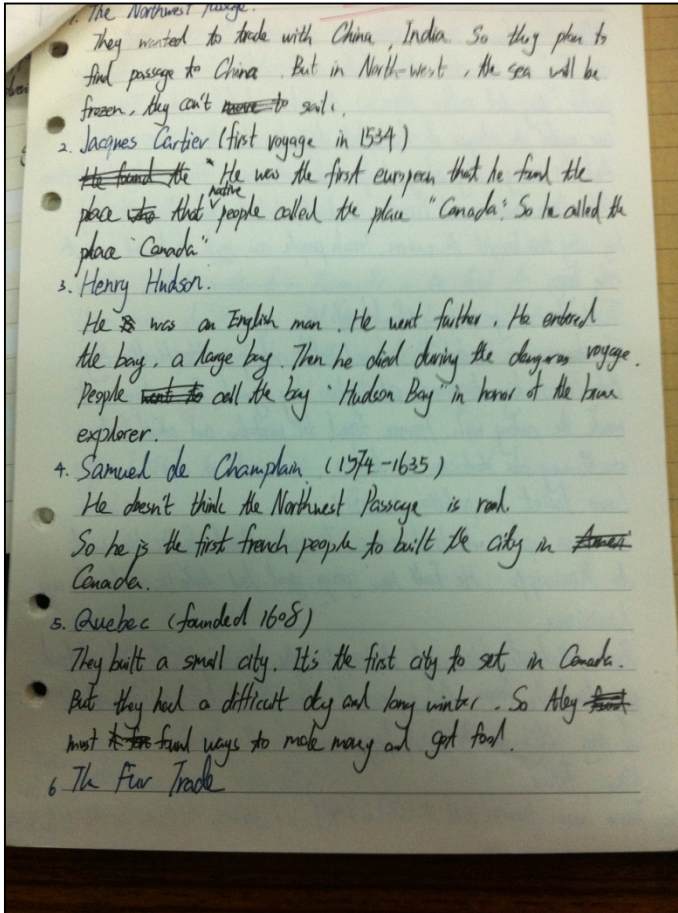 1. The Northwest Passage.
They wanted to trade with China, India. So they plan to
find passage to China. But in North-west, the sea will be
frozen, they can't sail.
2. Jacques Cartier (first voyage in 1534)
He found the He was the first european that he fund the
place that native people called the place "Canada". So he called the
place "Canada"
3. Henry Hudson.
He was an English man. He went further. He entered
the bay, a large bay. Then he died during the dangeras voyage.
People went to call the bay "Hudson Bay" in honor of the brave
explorer.
4. Samuel de Champlain (1574-1635)
He doesn't think the Northwest Passage is real.
So he is the first french people to built the city in
Canada.
5. Quebec (founded 1608)
They built a small city. It's the first city to set in Canada.
But they had a difficult day and long winter. So they
must fund ways to make money and got food.
6 The Fur Trade